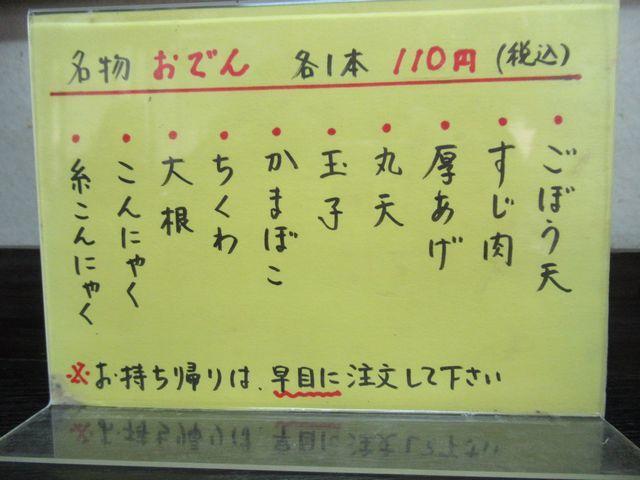 名物 おでん 各1本 110円 (税込)
・ごぼう天
・すじ肉
・厚あげ
・丸天
・玉子
・かまぼこ
・ちくわ
・大根
・こんにゃく
・糸こんにゃく
※お持ち帰りは、早目に注文して下さい